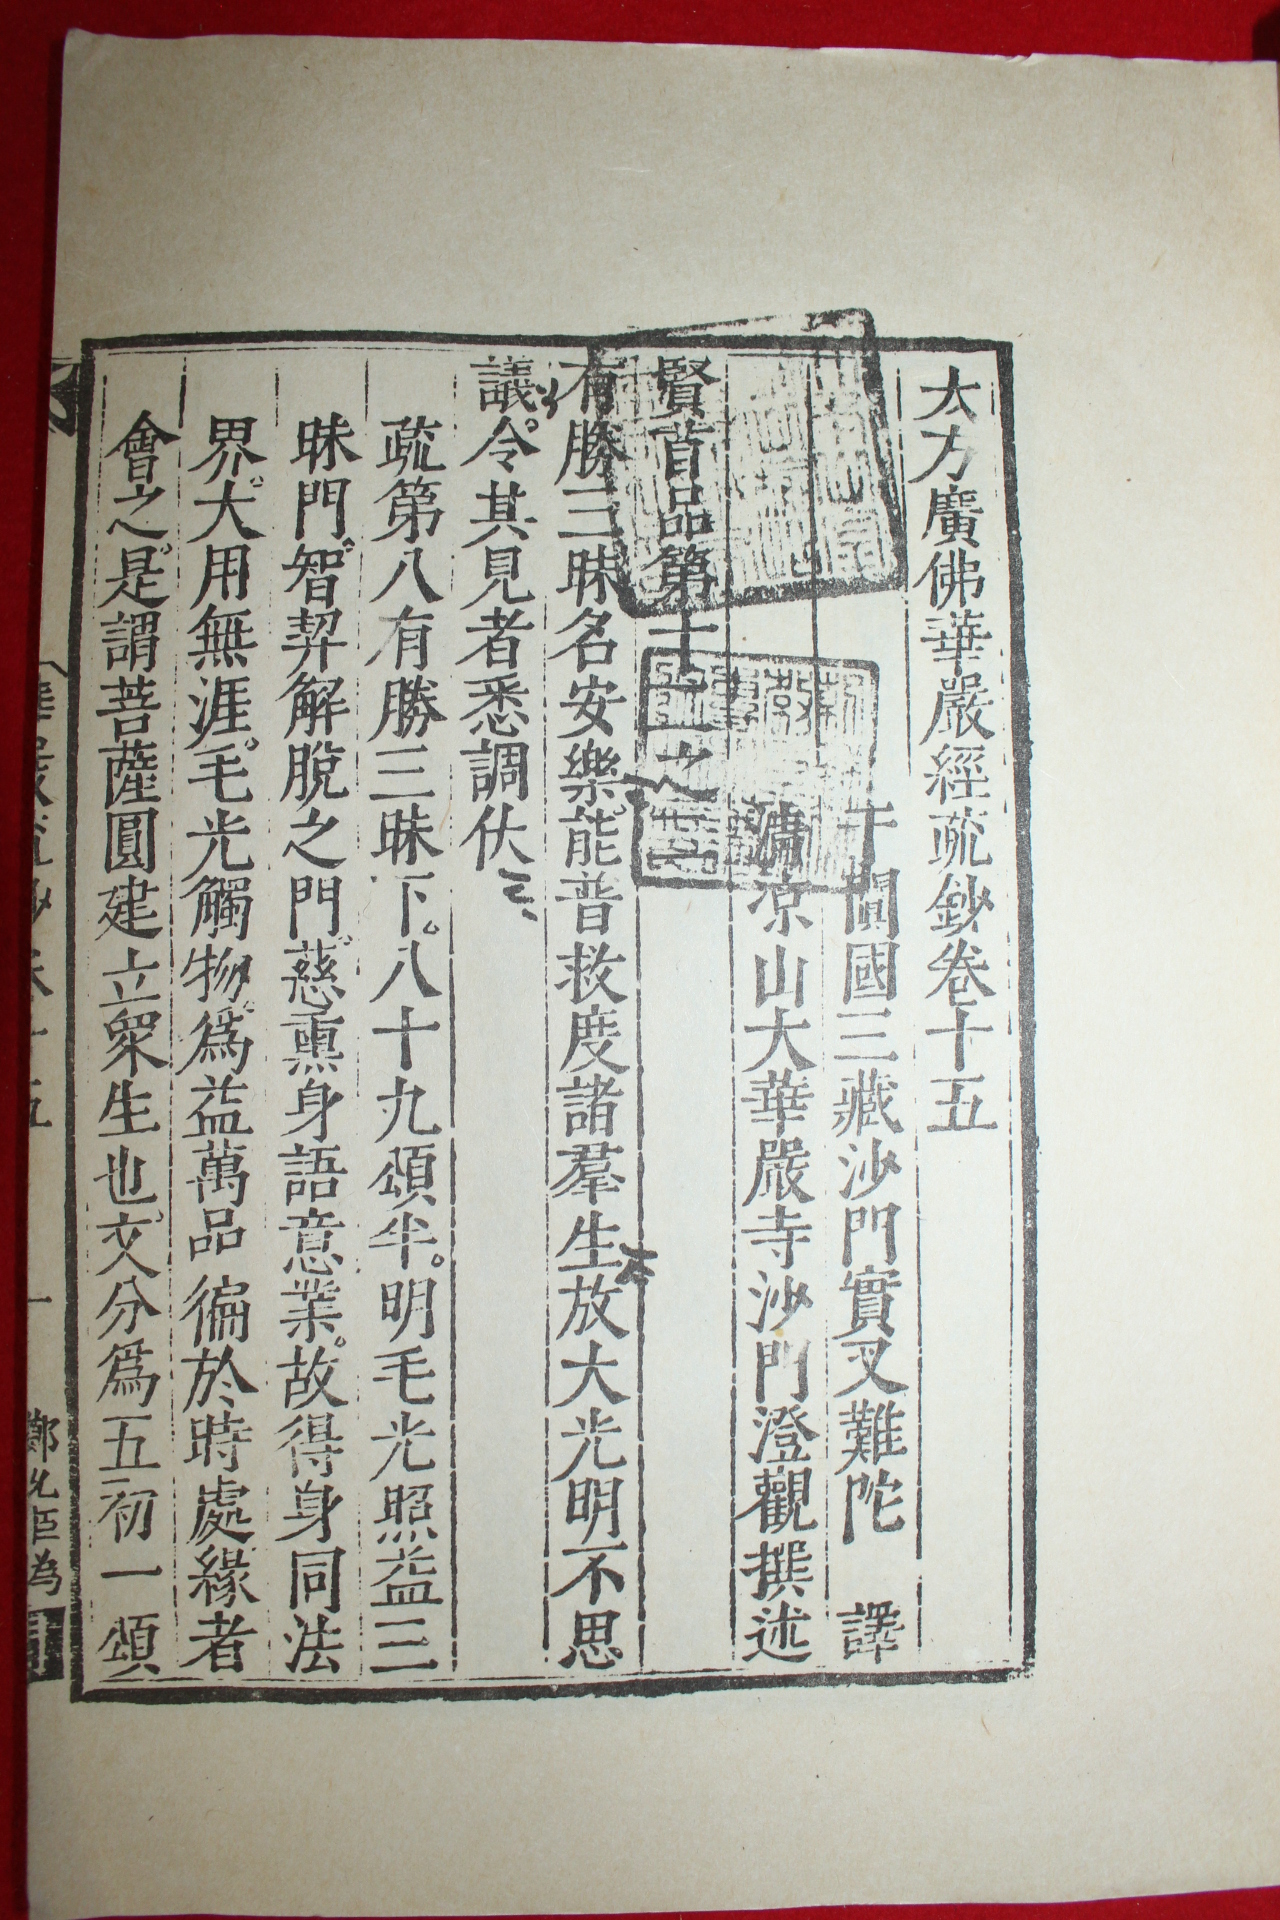 大方廣佛華嚴經疏鈔卷十五
于闐國三藏沙門實叉難陀 譯
清凉山大華嚴寺沙門澄觀撰述
賢首品第十二之二
有勝三昧名安樂能普救度諸羣生放大光明不思
議令其見者悉調伏
疏第八有勝三昧下八十九頌半明毛光照益三
昧門智契解脫之門慈熏身語意業故得身同法
界大用無涯毛光觸物爲益萬品徧於時處緣者
會之是謂菩薩圓建立衆生也文分爲五初一頌